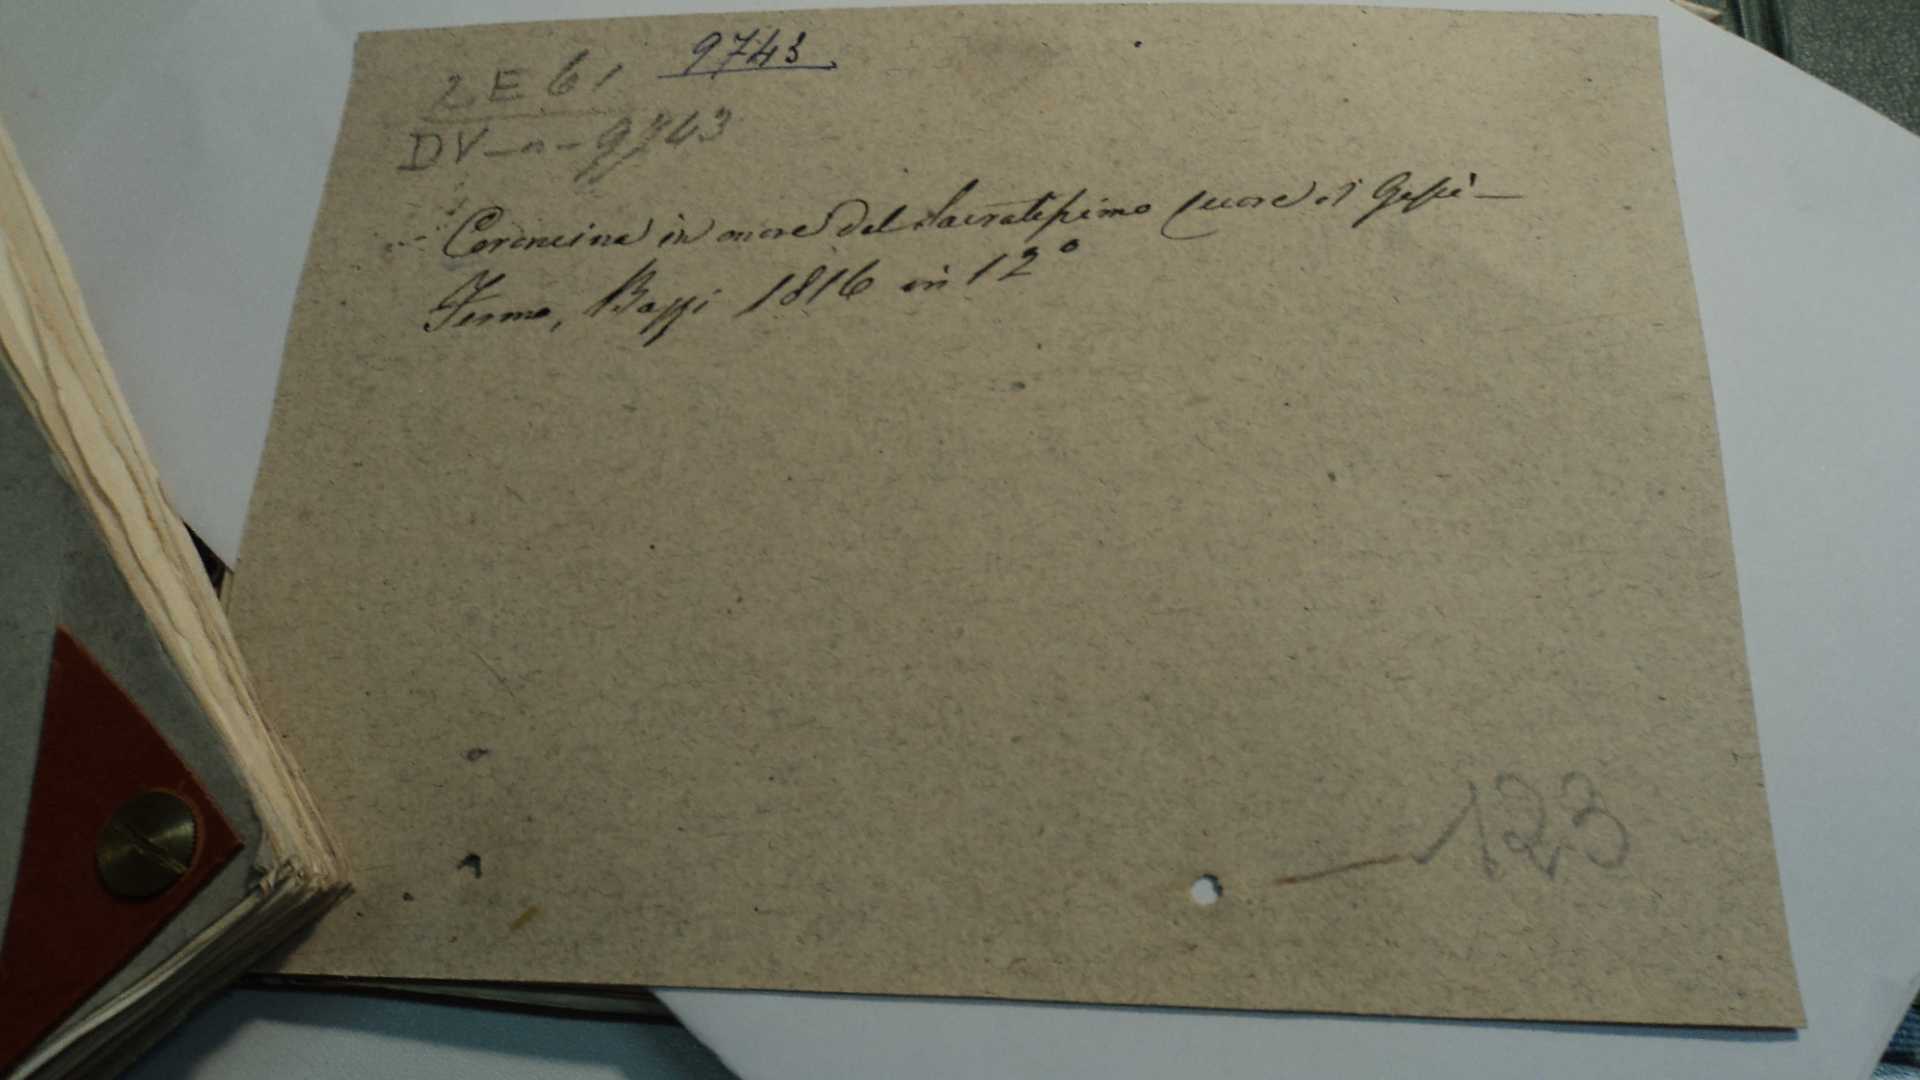 9743
2 E 61
DV-n-9743
Coroncina in onore del Sacratissimo Cuore di Gessù -
Fermo, Bassi 1816 in 12°
123